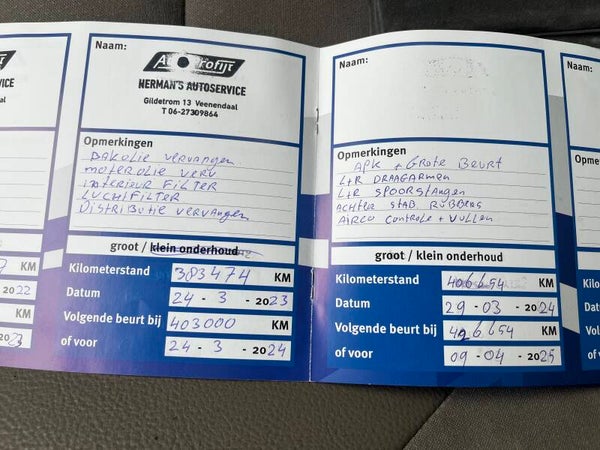 SERVICE
2022
KM
Naam:
AutoProfijt
HERMAN'S AUTOSERVICE
Gildetrom 13 Veenendaal
T 06-27309864
Opmerkingen
BAKOLIE VERVANGEN
MOTEROLIE VERV
INTERIEUR FILTER
LUCHTFILTER
DISTRIBUTIE VERVANGEN
groot / klein onderhoud
Kilometerstand 383474 KM
Datum 24 - 3 - 2023
Volgende beurt bij 403000 KM
of voor 24 - 3 - 2024
Naam:
Opmerkingen
APK + GROTE BEURT
L+R DRAAGARMEN
L+R SPOORSTANGEN
ACHTER STAB RUBBERS
AIRCO CONTROLE + VULLEN
groot / klein onderhoud
Kilometerstand 406654 KM
Datum 29 - 03 - 2024
Volgende beurt bij 426654 KM
of voor 09 - 04 - 2025
Naam:
Opm
Kilo
Dat
Vol
of v